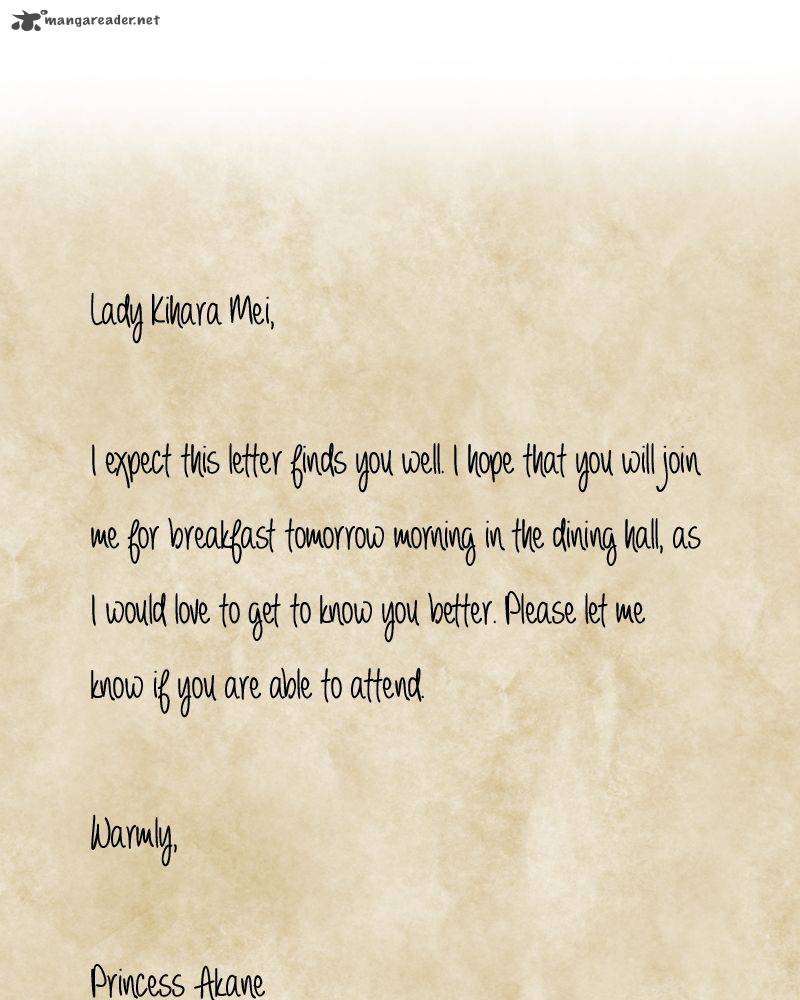 mangareader.net
Lady Kihara Mei,
I expect this letter finds you well. I hope that you will join
me for breakfast tomorrow morning in the dining hall, as
I would love to get to know you better. Please let me
know if you are able to attend.
Warmly,
Princess Akane